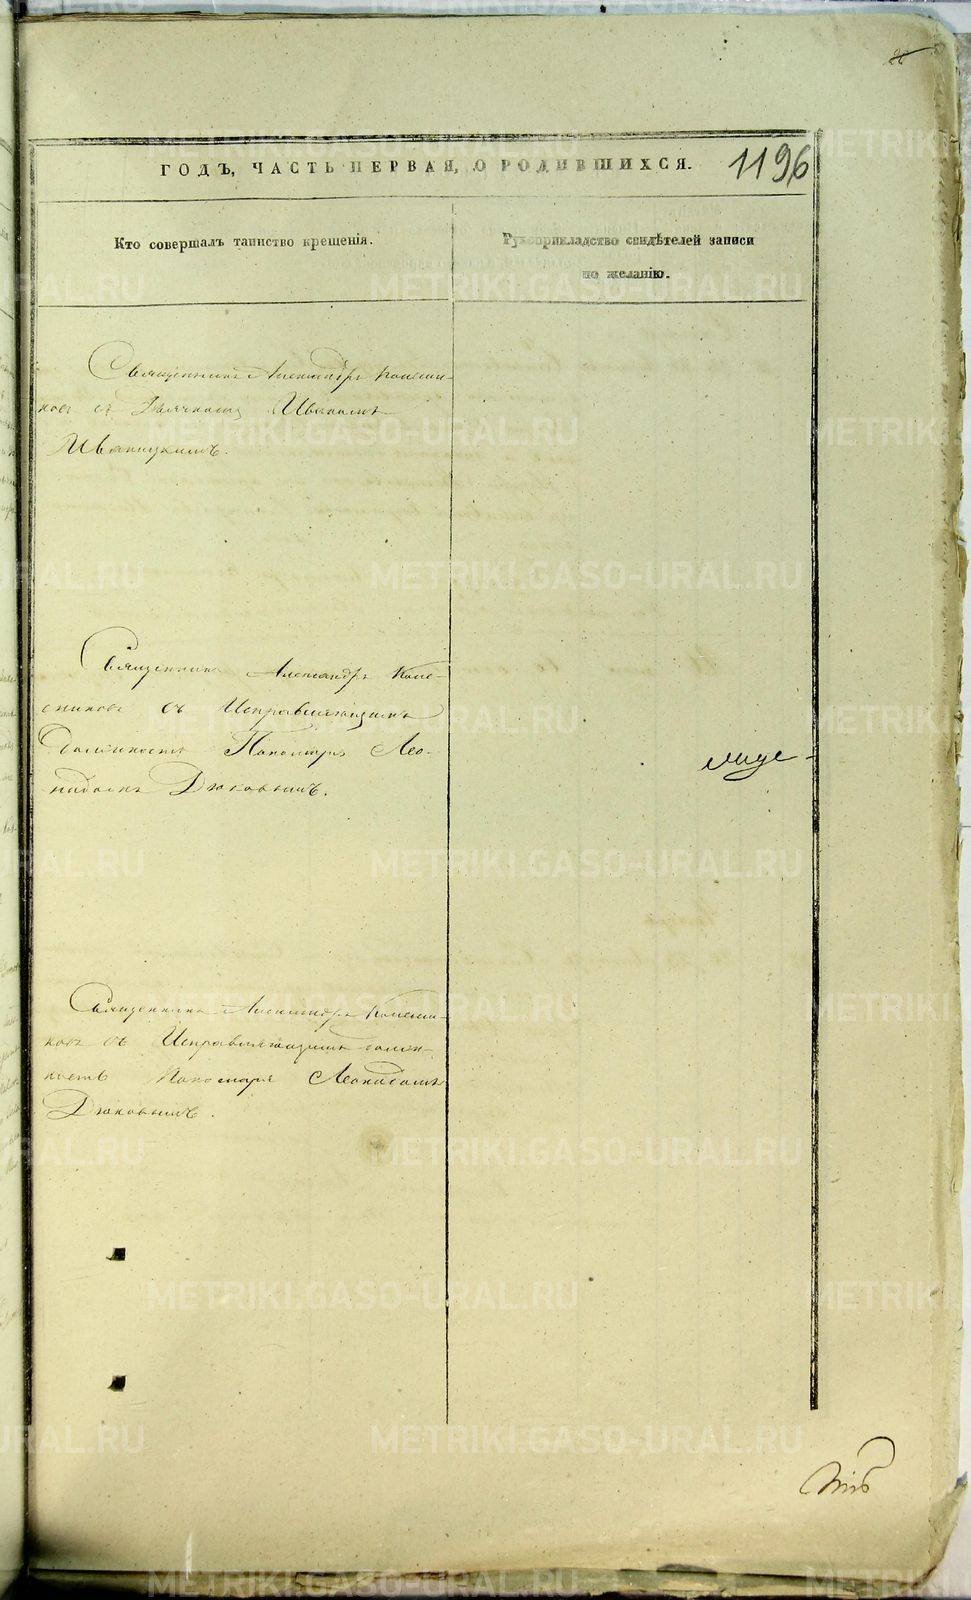 20
ГОДЪ, ЧАСТЬ ПЕРВАЯ, О РОДИВШИХСЯ. 1196
Кто совершалъ таинство крещенія.
Рукоприкладство свидѣтелей записи
по желанію.
Священникъ Александръ Колесни-
ковъ съ Дьячкомъ Иваномъ
Иваницкимъ.
Священникъ Александръ Коле-
сниковъ съ Исправляющимъ
должность Пономаря Лео-
нидомъ Дюковымъ.
Священникъ Александръ Колесни-
ковъ съ Исправляющимъ долж-
ность Пономаря Леонидомъ
Дюковымъ.
METRIKI.GASO-URAL.RU